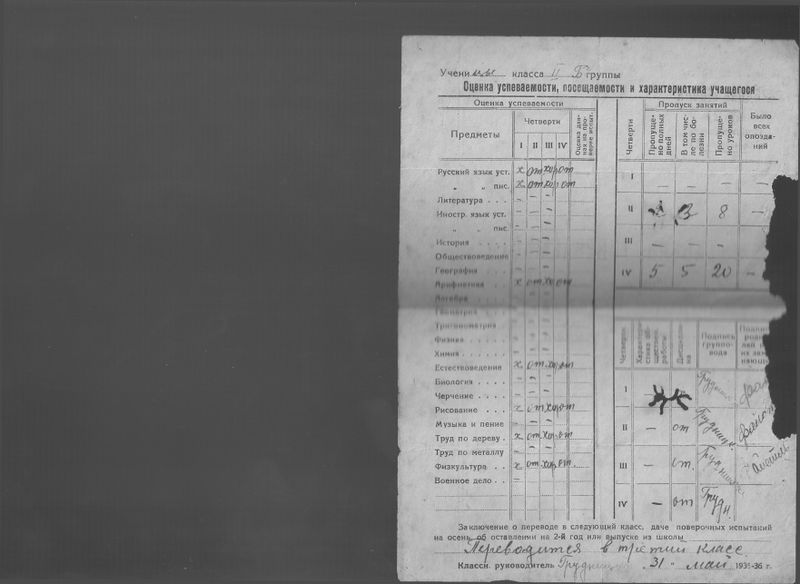 Учени класса II Б группы
Оценка успеваемости, посещаемости и характеристика учащегося
Оценка успеваемости
Предметы
Четверти
I II III IV
Оценка дан- ная на про- верке испыт.
Русский язык уст. х от хор от
„ „ пис. х от хор от
Литература . . . - - -
Иностр. язык уст. - - -
„ „ пис. - - -
История . . . . - - -
Обществоведение - - -
География . . . . - - -
Арифметика . . . х от хор от
Алгебра
Геометрия
Тригонометрия
Физика
Химия
Естествоведение х от хор от
Биология . . . . - - -
Черчение . . . . - - -
Рисование . . . х от хор от
Музыка и пение - - -
Труд по дереву . х от хор от
Труд по металлу - - -
Физкультура . . х от хор от.
Военное дело . . -
Пропуск занятий
Четверти
Пропуще- но полных дней
В том чис- ле по бо- лезни
Пропуще- но уроков
Было всех опозда- ний
I — — — —
II 3 8 —
III — — —
IV 5 5 20 —
Четверти
Характери- стика об- ществен. работы
Дисципли- на
Подпись группо- вода
I
II — от
III — от.
IV — от Трудн.
Заключение о переводе в следующий класс, даче поверочных испытаний
на осень, об оставлении на 2-й год или выпуске из школы
Переводится в третий класс
Классн. руководитель 31 „ май 1935-36 г.